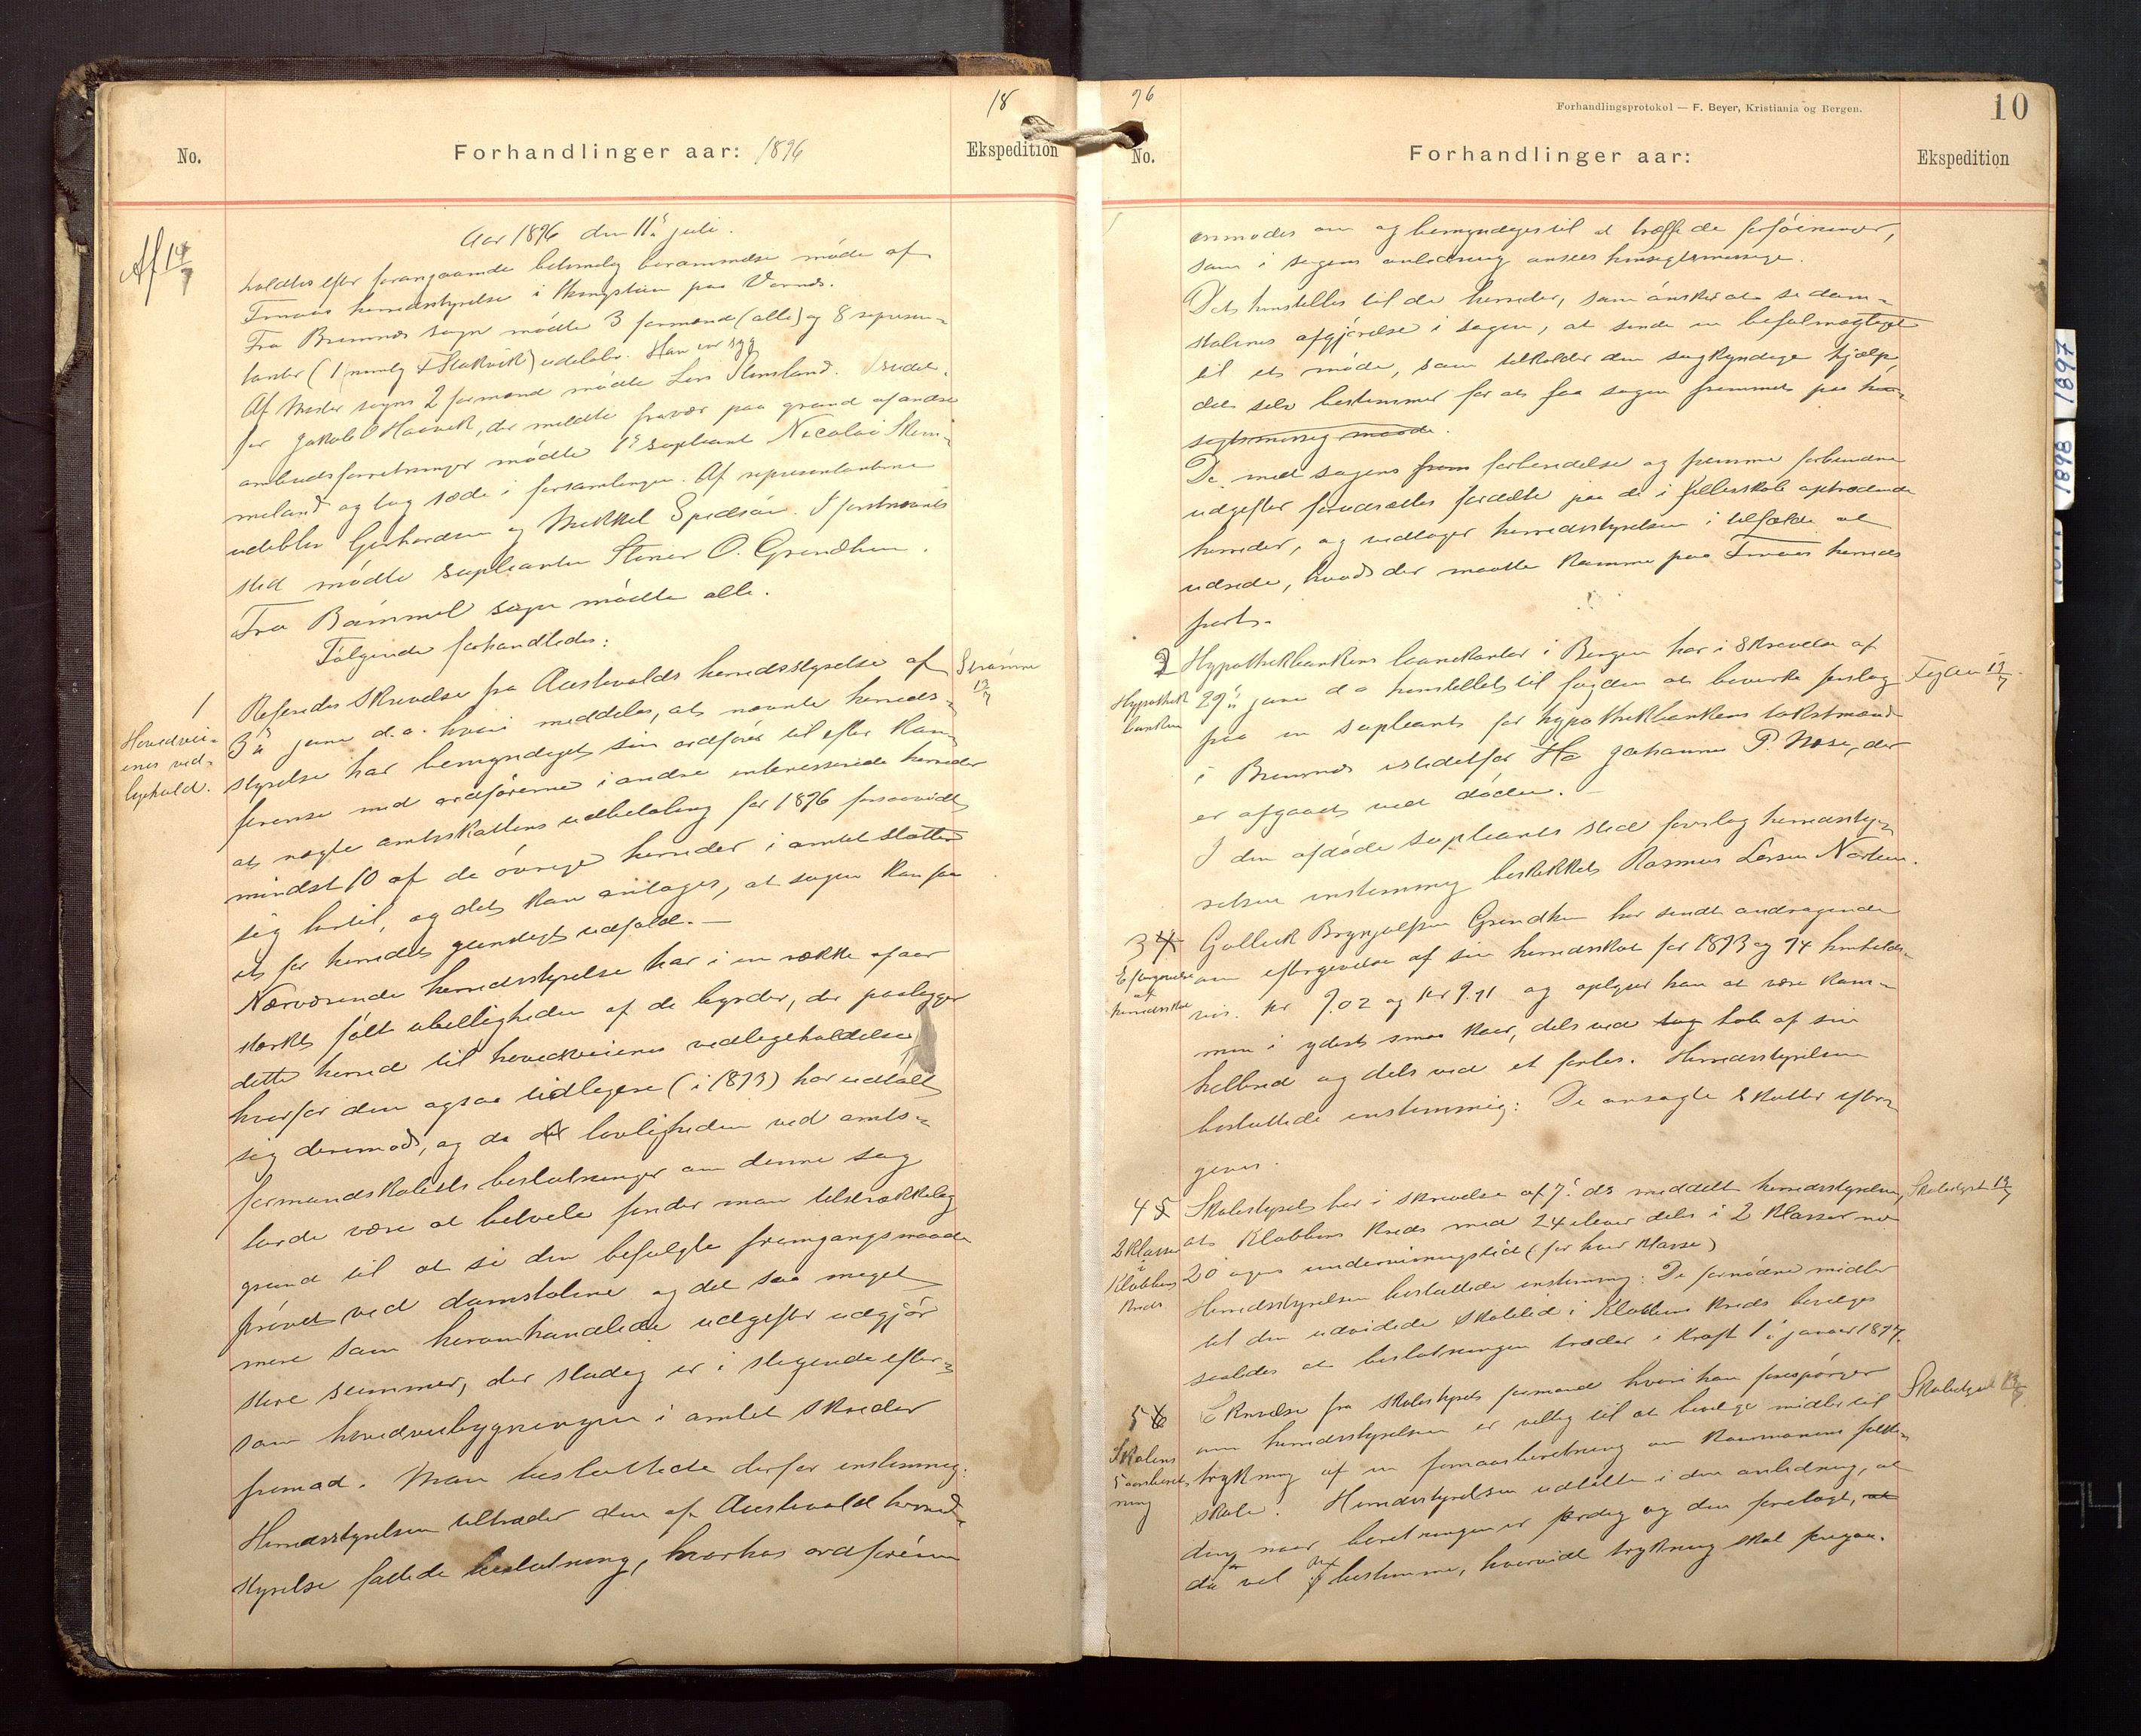 18
No.
Forhandlinger aar: 1896
Ekspedition
Aar 1896 den 11te juli.
Af 14/7
holdtes efter forangaaende betimelig berammelse møde af
Finnaas herredsstyrelse i thingstuen paa Vornes.
Fra Bremnes sogn mødte 3 formænd (alle) og 8 repræsen-
tanter (1 nemlig Stakvik) udeblev. Han var syg
Af Mosters sogns 2 formænd mødte Lars Slensland. Istedet-
for Jakob O Haavik, der meldte fravær paa grund af andre
ombudsforretninger mødte 1te supleant Nicolai Skim-
meland og tog sæde i forsamlingen. Af repræsentanterne
udeblev Gerhardsen og Mikkel Spedsøn. I førstnævntes
sted mødte supleanten Stener O. Grindheim.
Fra Bømmel sogn mødte alle.
Følgende forhandledes:
1
Hovedvei-
enes ved-
ligehold.
Referedes skrivelse fra Austevolds herredsstyrelse af
3die juni d.a. hvori meddeles, at nævnte herreds-
styrelse har bemyndiget sin ordfører til efter kon-
ferense med ordførerne i andre interesserede herreder
at nægte amtsskattens udbetaling for 1896 forsaavidt
mindst 10 af de øvrige herreder i amtet slutter
sig hertil, og det kan antages, at sagen kan faa
et for herredet gunstigt udfald.-
Nærværende herredsstyrelse har i en række af aar
stærkt følt ubilligheden af de byrder, der paalægges
dette herred til hovedveienes vedligeholdelse,
hvorfor den ogsaa tidligere (i 1893) har udtalt
sig derimod, og da lovligheden ved amts-
formandskabets beslutninger om denne sag
turde være at betvile finder man tilstrækkelig
grund til at se den befulgte fremgangsmaade
prøvet ved domstolene og det saa meget
mere som heromhandlede udgifter udgjør
store summer, der stadig er i stigende efter-
som hovedveibygningen i amtet skrider
fremad. Man besluttede derfor enstemmig:
Herredsstyrelsen tiltræder den af Austevold herreds-
styrelse fattede beslutning, hvorhos ordføreren
Strømme
13/7
96
Forhandlingsprotokol — F. Beyer, Kristiania og Bergen.
10
No.
Forhandlinger aar:
Ekspedition
anmodes om og bemyndiges til at træffe de forføininger,
som i sagens anledning ansees hensigtsmæssige.
Det henstilles til de herreder, som ønsker at se dom-
stolenes afgjørelse i sagen, at sende en befuldmægtiget
til et møde, som tilkalder den sagkyndige hjælp,
det selv bestemmer for at faa sagen fremmet paa hen-
sigtsmæssig maade.
De med sagens forberedelse og fremme forbundne
udgifter forudsættes fordelte paa de i fellesskab optrædende
herreder, og vedtager herredsstyrelsen i tilfælde at
udrede, hvad der maatte komme paa Finnaas herreds
part.
2
Hypothek
banken
Hypothekbankens laanekontor i Bergen har i skrivelse af
29de juni d a henstillet til fogden at bevirke forslag
paa en supleant for hypothekbankens takstmænd
i Bremnes istedetfor Johannes P. Næse, der
er afgaaet ved døden.-
I den afdøde supleants sted foreslog herredssty-
relsen enstemmig beskikket Rasmus Larsen Nordtun.
Fogden 13/7.
3 4
Eftergivelse
af
herredsskat
Gullek Brynjulfsen Grindheim har sendt andragende
om eftergivelse af sin herredsskat for 1893 og 94 henholds-
vis. kr 9.02 og kr 9.91 og oplyser han at være kom-
men i yderst smaa kaar, dels ved tab af sin
helbred og dels ved et forlis. Herredsstyrelsen
besluttede enstemmig: De ansøgte skatter efter-
gives.
4 5
2 Klasser
i
Klubbens
kreds
Skolestyret har i skrivelse af 7de ds meddelt herredsstyrelsen,
at Klubbens kreds med 24 elever deles i 2 klasser med
20 ugers undervisningstid (for hver klasse)
Herredsstyrelsen besluttede enstemmig: De fornødne midler
til den udvidede skoletid i Klubbens kreds bevilges
saaledes at beslutningen træder i kraft 1te januar 1897.
Skolestyret 13/7
5 6
Skolens
5 aarsberet-
ning
Skrivelse fra skolestyrets formand hvori han forespørger
om herredsstyrelsen er villig til at bevilge midler til
trykning af en femaarsberetning om kommunens folke-
skole. Herredsstyrelsen udtalte i den anledning, at
den, naar beretningen er færdig og den forelagt, at
da vil bestemme, hvorvidt trykning skal foregaa.
Skolestyret 13/7
1897
1898